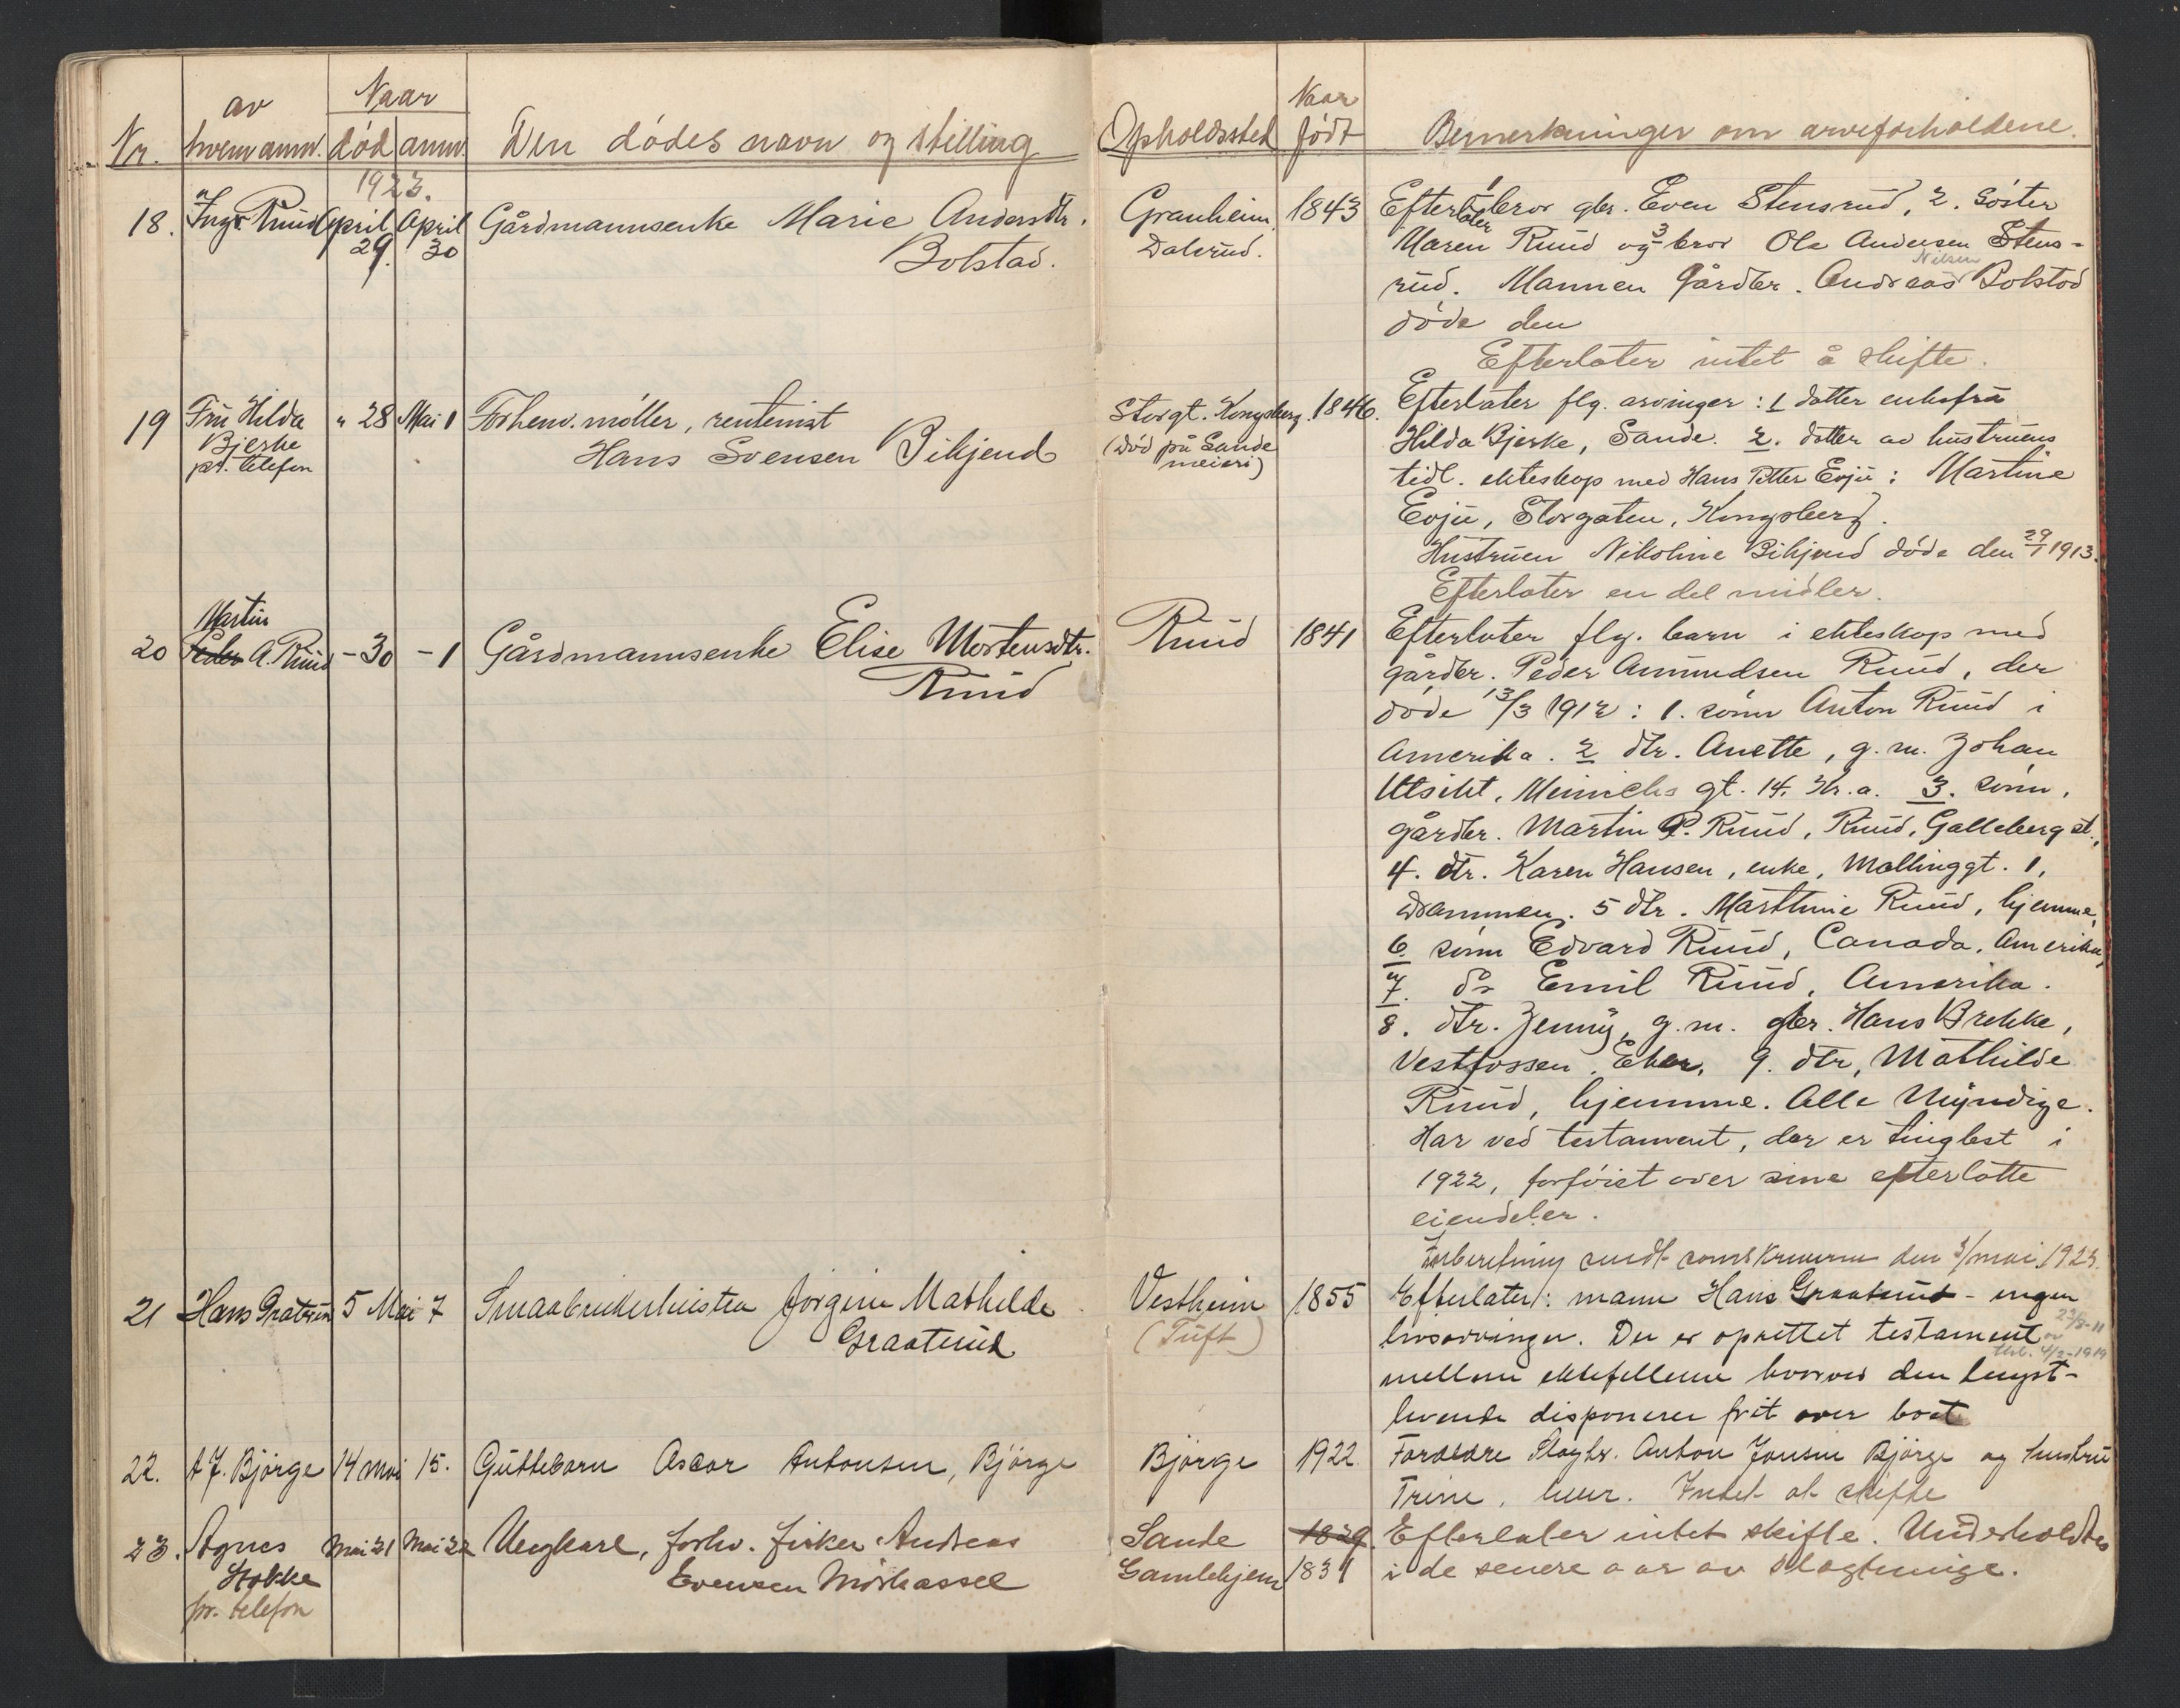 Nr. av hvem anm. Naar død anm. Den dødes navn og stilling Opholdssted Naar født Bemerkninger om arveforholdene.
1923.
18. Ruud April 29. April 30 Gårdmannsenke Marie Andersdtr. Bolstad. Granheim Dalsrud. 1843
Efterlater 1 bror gbr. Even Stensrud, 2. søster
Maren Ruud og 3 bror Ole Andersen Stens-
rud. Mannen Gårdbr. Andreas Nilsen Bolstad
døde den
Efterlater intet å skifte.
19 Fru Hilda Bjerke pr. telefon " 28 Mai 1 Forhenv. møller, rentenist
Hans Svensen Bikjend
Storgt. Kongsberg. (død på Sande meieri) 1846.
Efterlater flg. arvinger: 1 datter enkefru
Hilda Bjerke, Sande. 2. datter av hustruens
tidl. ekteskap med Hans Petter Evju: Martine
Evju, Storgaten, Kongsberg.
Hustruen Nikoline Bikjend døde den 29/1 1913.
Efterlater en del midler.
20 Martin Peder A. Ruud - 30 - 1 Gårdmannsenke Elise Mortensdtr.
Ruud
Ruud 1841
Efterlater flg. barn i ekteskap med
gårdbr. Peder Amundsen Ruud, der
døde 13/3 1912: 1. sønn Anton Ruud i
Amerika. 2 dtr. Anette, g. m. Johan
Utsikt, Meinichs gt. 14. Kr.a. 3. sønn,
gårdbr. Martin P. Ruud, Ruud, Galleberg st.,
4. dtr. Karen Hansen, enke, Møllinggt. 1,
Drammen. 5 dtr. Marthine Ruud, hjemme,
6. sønn Edvard Ruud, Canada, Amerika,
7. do Emil Ruud, Amerika.
8. dtr. Jenny, g. m. gbr. Hans Brekke,
Vestfossen, Eker. 9. dtr, Mathilde
Ruud, hjemme. Alle Myndige.
Har ved testament, der er tinglest i
1922, forføiet over sine efterlatte
eiendeler.
Indberetning sendt sorenskriveren den 3/mai 1923.
21 Hans Graterud 5 Mai 7 Smaabrukerhustru Jørgine Mathilde
Graaterud
Vestheim (Tuft) 1855
Efterlater: mann Hans Graaterud - ingen
livsarvinger. Der er oprettet testament av 23/8-11
4/2-1919
mellem ektefellene hvorved den lengst-
levende disponerer frit over boet
22. A J. Bjørge 14 mai 15. Guttebarn Oscar Antonsen, Bjørge Bjørge 1922
Foreldre Slagtr. Anton Jonsen Bjørge og hustru
Trine, Intet at skifte
23. Agnes Stokke pr. telefon Mai 21 Mai 22 Ungkarl, forhv. fisker Andreas
Evensen Mørkassel
Sande Gamlehjem 1829. 1831
Efterlater intet skifte. Underholdtes
i de senere aar av slægtninge.